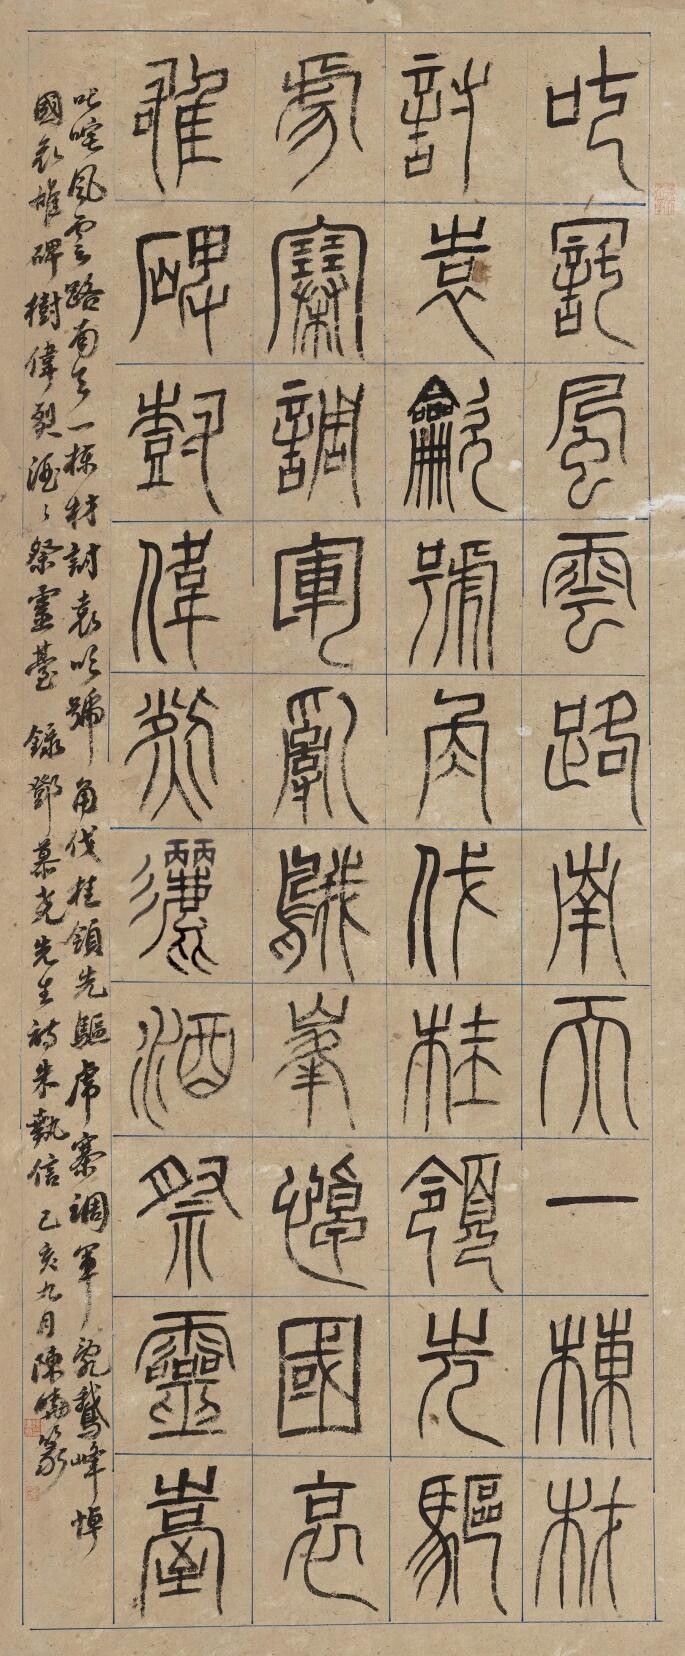 叱咤風雲路南天一棟材
討袁吹號角伐桂領先驅
虎寨調軍亂鵝峯悼國哀
雄碑樹偉烈灑酒祭靈臺
叱咤風雲路南天一棟材討袁吹號角伐桂領先驅虎寨調軍亂鵝峰悼
國哀雄碑樹偉烈酒祭靈臺錄鄧慕堯先生詩朱執信己亥九月陳篆